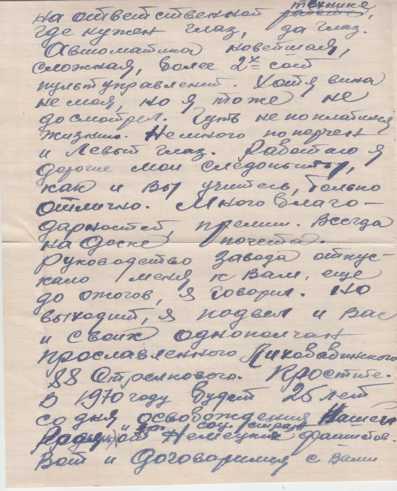 на ответственной технике,
где нужен глаз, да глаз.
Автоматика новейшая,
сложная, более 2х сот
пульт управлений. Хотя вина
не моя, но я тоже не
досмотрел. Чуть не поплатился
жизнью. Немного попорчен
и левый глаз. Работаю я
дорогие мои следопыты,
как и Вы учитесь, только
отлично. Много благо-
дарностей, премии. Всегда
на доске почёта.
Руководство завода отпус-
кало меня к Вам, еще
до ожогов, я говорил. Но
выходит, я подвел и Вас
и своих однополчан
прославленного
88 Стрелкового. Простите.
В 1970 году будет 25 лет
со дня освобождения Нашей
Родины и соц. стран
от Немецких фашистов.
Вот и договоримся с Вами